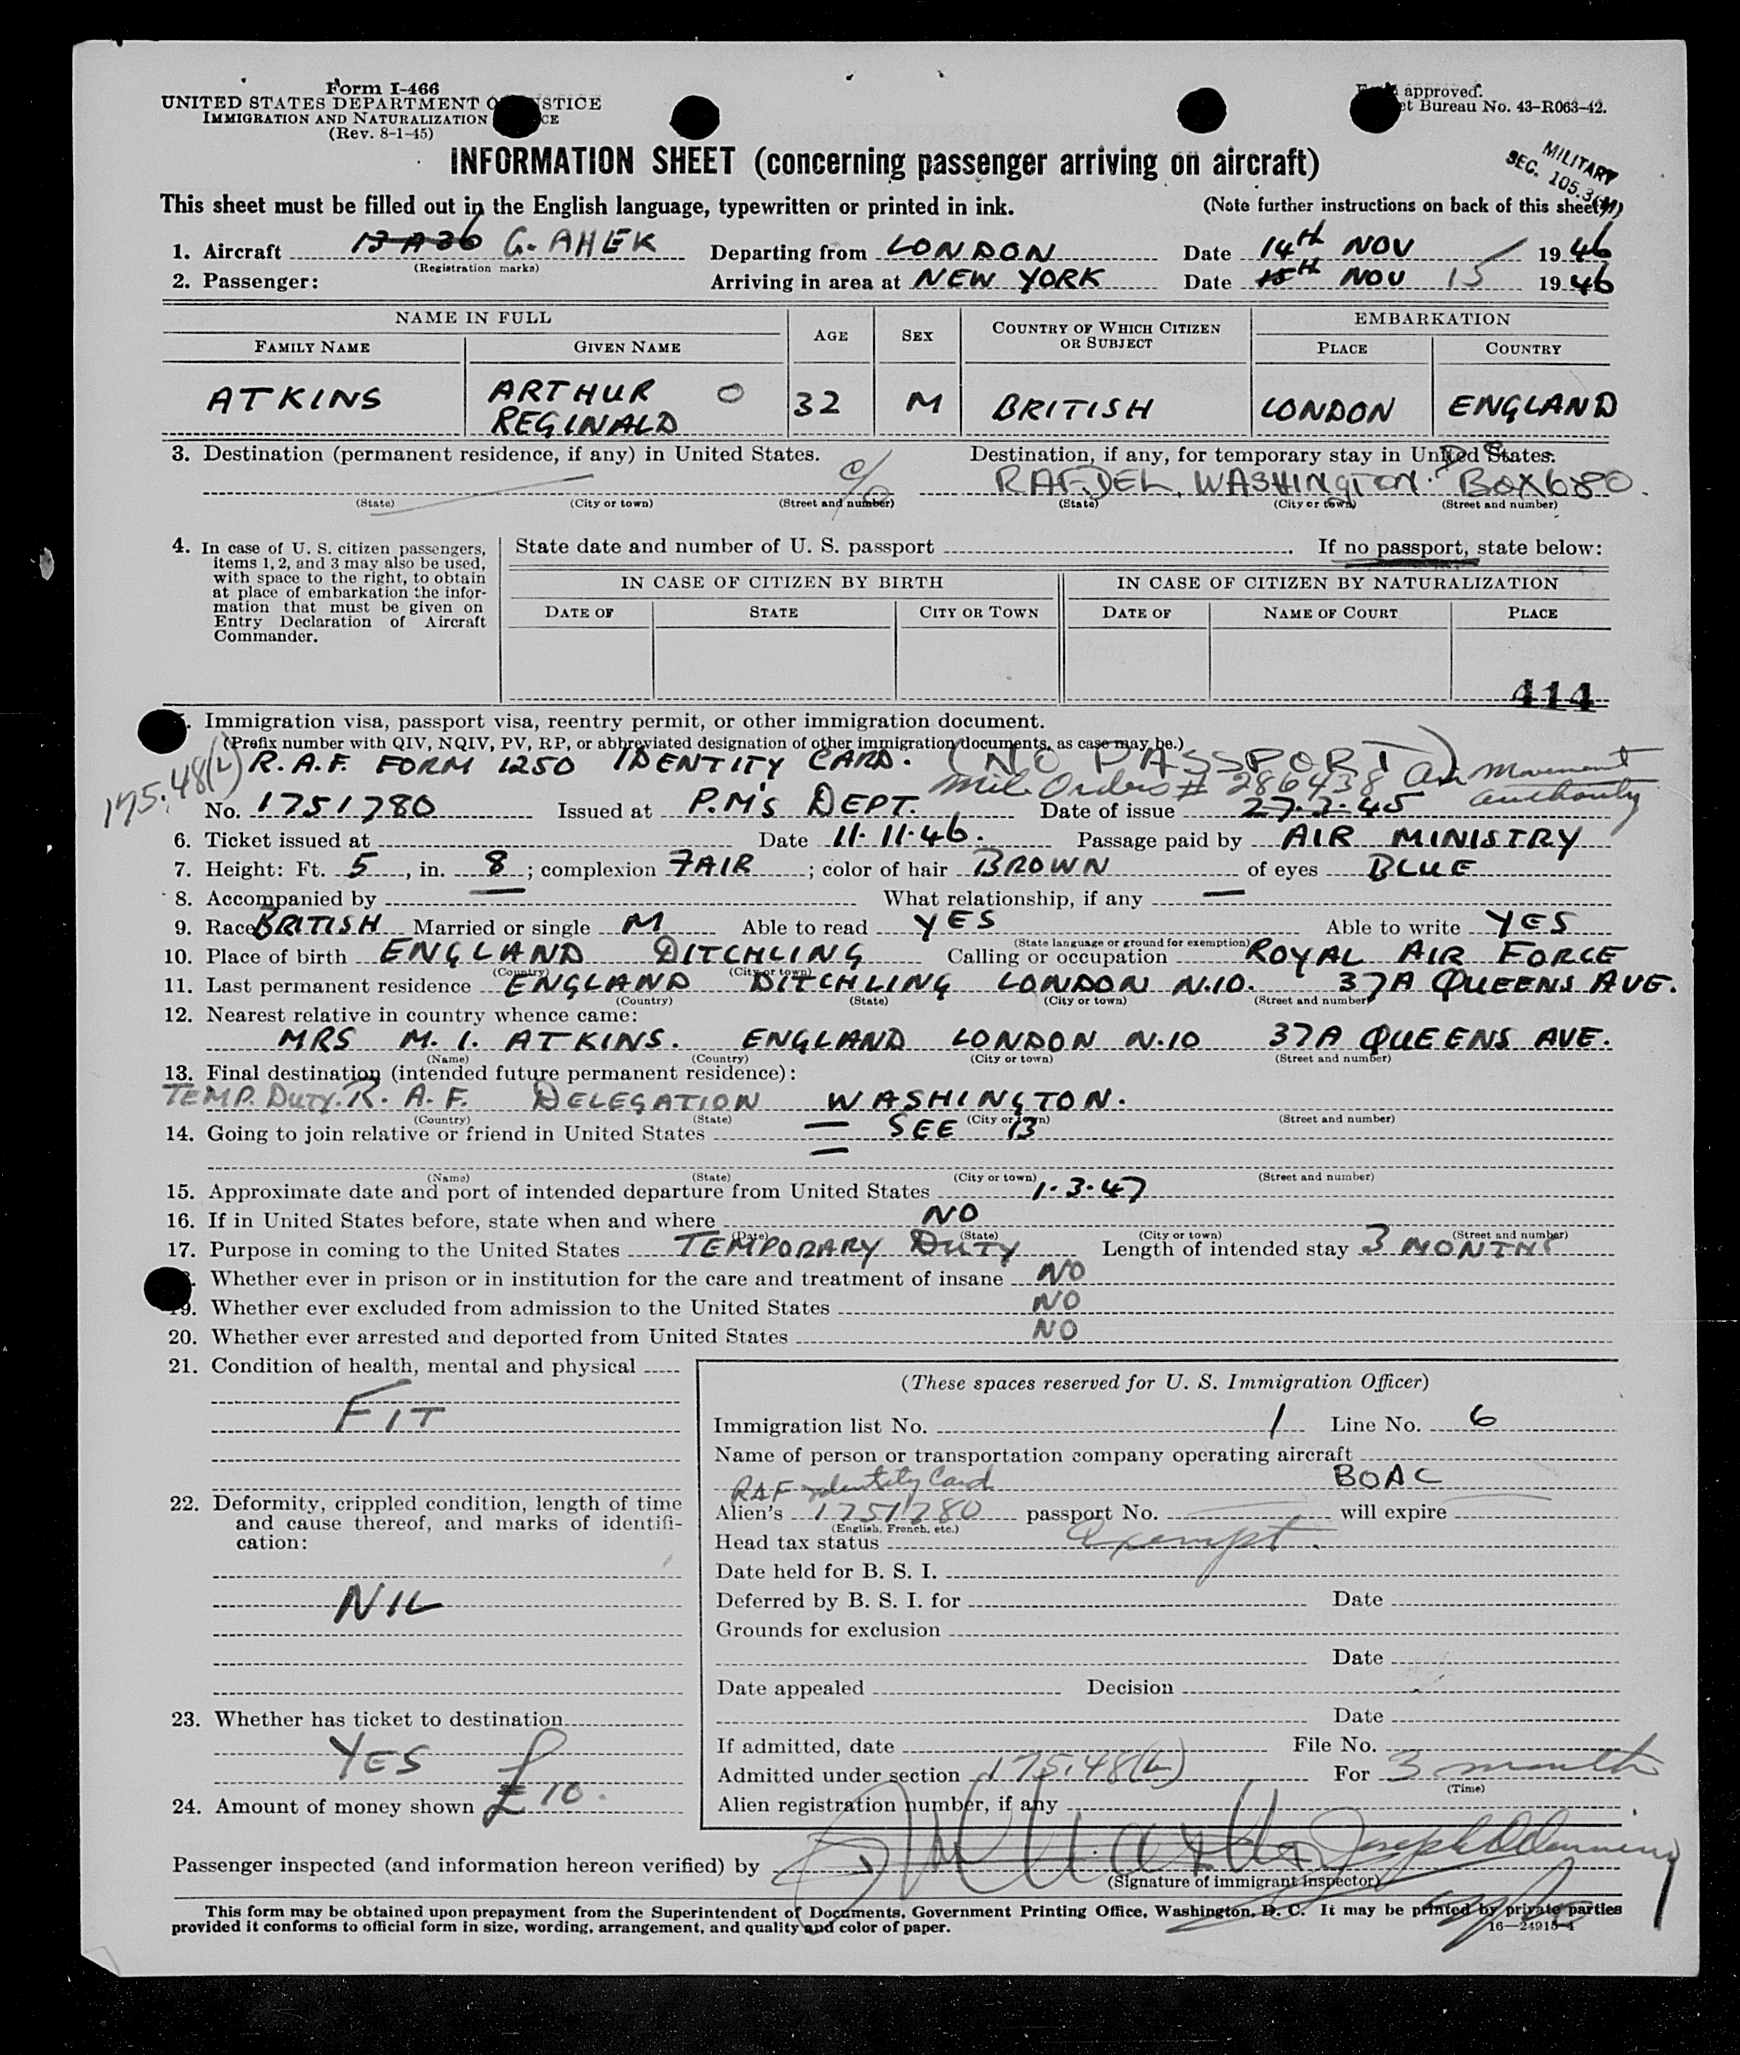 Form I-466
UNITED STATES DEPARTMENT OF JUSTICE
IMMIGRATION AND NATURALIZATION SERVICE
(Rev. 8-1-45)
approved.
Bureau No. 43-R063-42.
MILITARY
SEC. 105.3
INFORMATION SHEET (concerning passenger arriving on aircraft)
This sheet must be filled out in the English language, typewritten or printed in ink. (Note further instructions on back of this sheet)
1. Aircraft 13 A 36 G. AHEK Departing from LONDON Date 14th NOV 1946
(Registration marks)
2. Passenger: Arriving in area at NEW YORK Date 15th NOV 15 1946
NAME IN FULL AGE SEX COUNTRY OF WHICH CITIZEN OR SUBJECT EMBARKATION
FAMILY NAME GIVEN NAME PLACE COUNTRY
ATKINS ARTHUR REGINALD O 32 M BRITISH LONDON ENGLAND
3. Destination (permanent residence, if any) in United States. Destination, if any, for temporary stay in United States.
c/o RAF.DEL. WASHINGTON. BOX 680.
(State) (City or town) (Street and number) (State) (City or town) (Street and number)
4. In case of U. S. citizen passengers, items 1, 2, and 3 may also be used, with space to the right, to obtain at place of embarkation the information that must be given on Entry Declaration of Aircraft Commander.
State date and number of U. S. passport . If no passport, state below:
IN CASE OF CITIZEN BY BIRTH IN CASE OF CITIZEN BY NATURALIZATION
DATE OF STATE CITY OR TOWN DATE OF NAME OF COURT PLACE
414
5. Immigration visa, passport visa, reentry permit, or other immigration document.
(Prefix number with QIV, NQIV, PV, RP, or abbreviated designation of other immigration documents, as case may be.)
175.48(L) R.A.F. FORM 1250 IDENTITY CARD. (NO PASSPORT)
Mil. Orders # 286438 Air Movement Authority
No. 1751780 Issued at P.M's DEPT. Date of issue 27.3.45
6. Ticket issued at Date 11.11.46. Passage paid by AIR MINISTRY
7. Height: Ft. 5, in. 8; complexion FAIR; color of hair BROWN of eyes BLUE
8. Accompanied by — What relationship, if any —
9. Race BRITISH Married or single M Able to read YES Able to write YES
(State language or ground for exemption)
10. Place of birth ENGLAND DITCHLING Calling or occupation ROYAL AIR FORCE
(Country) (City or town)
11. Last permanent residence ENGLAND DITCHLING LONDON N.10. 37A QUEENS AVE.
(Country) (State) (City or town) (Street and number)
12. Nearest relative in country whence came:
MRS M. I. ATKINS. ENGLAND LONDON N.10 37A QUEENS AVE.
(Name) (Country) (City or town) (Street and number)
13. Final destination (intended future permanent residence):
TEMP. DUTY. R. A. F. DELEGATION WASHINGTON.
(Country) (State) (City or town) (Street and number)
14. Going to join relative or friend in United States — SEE 13
(Name) (State) (City or town) (Street and number)
15. Approximate date and port of intended departure from United States 1.3.47
16. If in United States before, state when and where NO
(Date) (State) (City or town) (Street and number)
17. Purpose in coming to the United States TEMPORARY DUTY Length of intended stay 3 MONTHS
18. Whether ever in prison or in institution for the care and treatment of insane NO
19. Whether ever excluded from admission to the United States NO
20. Whether ever arrested and deported from United States NO
21. Condition of health, mental and physical
FIT
22. Deformity, crippled condition, length of time and cause thereof, and marks of identification:
NIL
23. Whether has ticket to destination
YES
24. Amount of money shown £10.
(These spaces reserved for U. S. Immigration Officer)
Immigration list No. 1 Line No. 6
Name of person or transportation company operating aircraft
BOAC
RAF identity Card
Alien's 1751780 passport No. will expire
(English, French, etc.)
Head tax status exempt.
Date held for B. S. I.
Deferred by B. S. I. for Date
Grounds for exclusion
Date
Date appealed Decision
Date
If admitted, date File No.
Admitted under section 175.48(L) For 3 months
(Time)
Alien registration number, if any
Passenger inspected (and information hereon verified) by
(Signature of immigrant inspector)
This form may be obtained upon prepayment from the Superintendent of Documents, Government Printing Office, Washington, D. C. It may be printed by private parties
provided it conforms to official form in size, wording, arrangement, and quality and color of paper.
16—24915-1